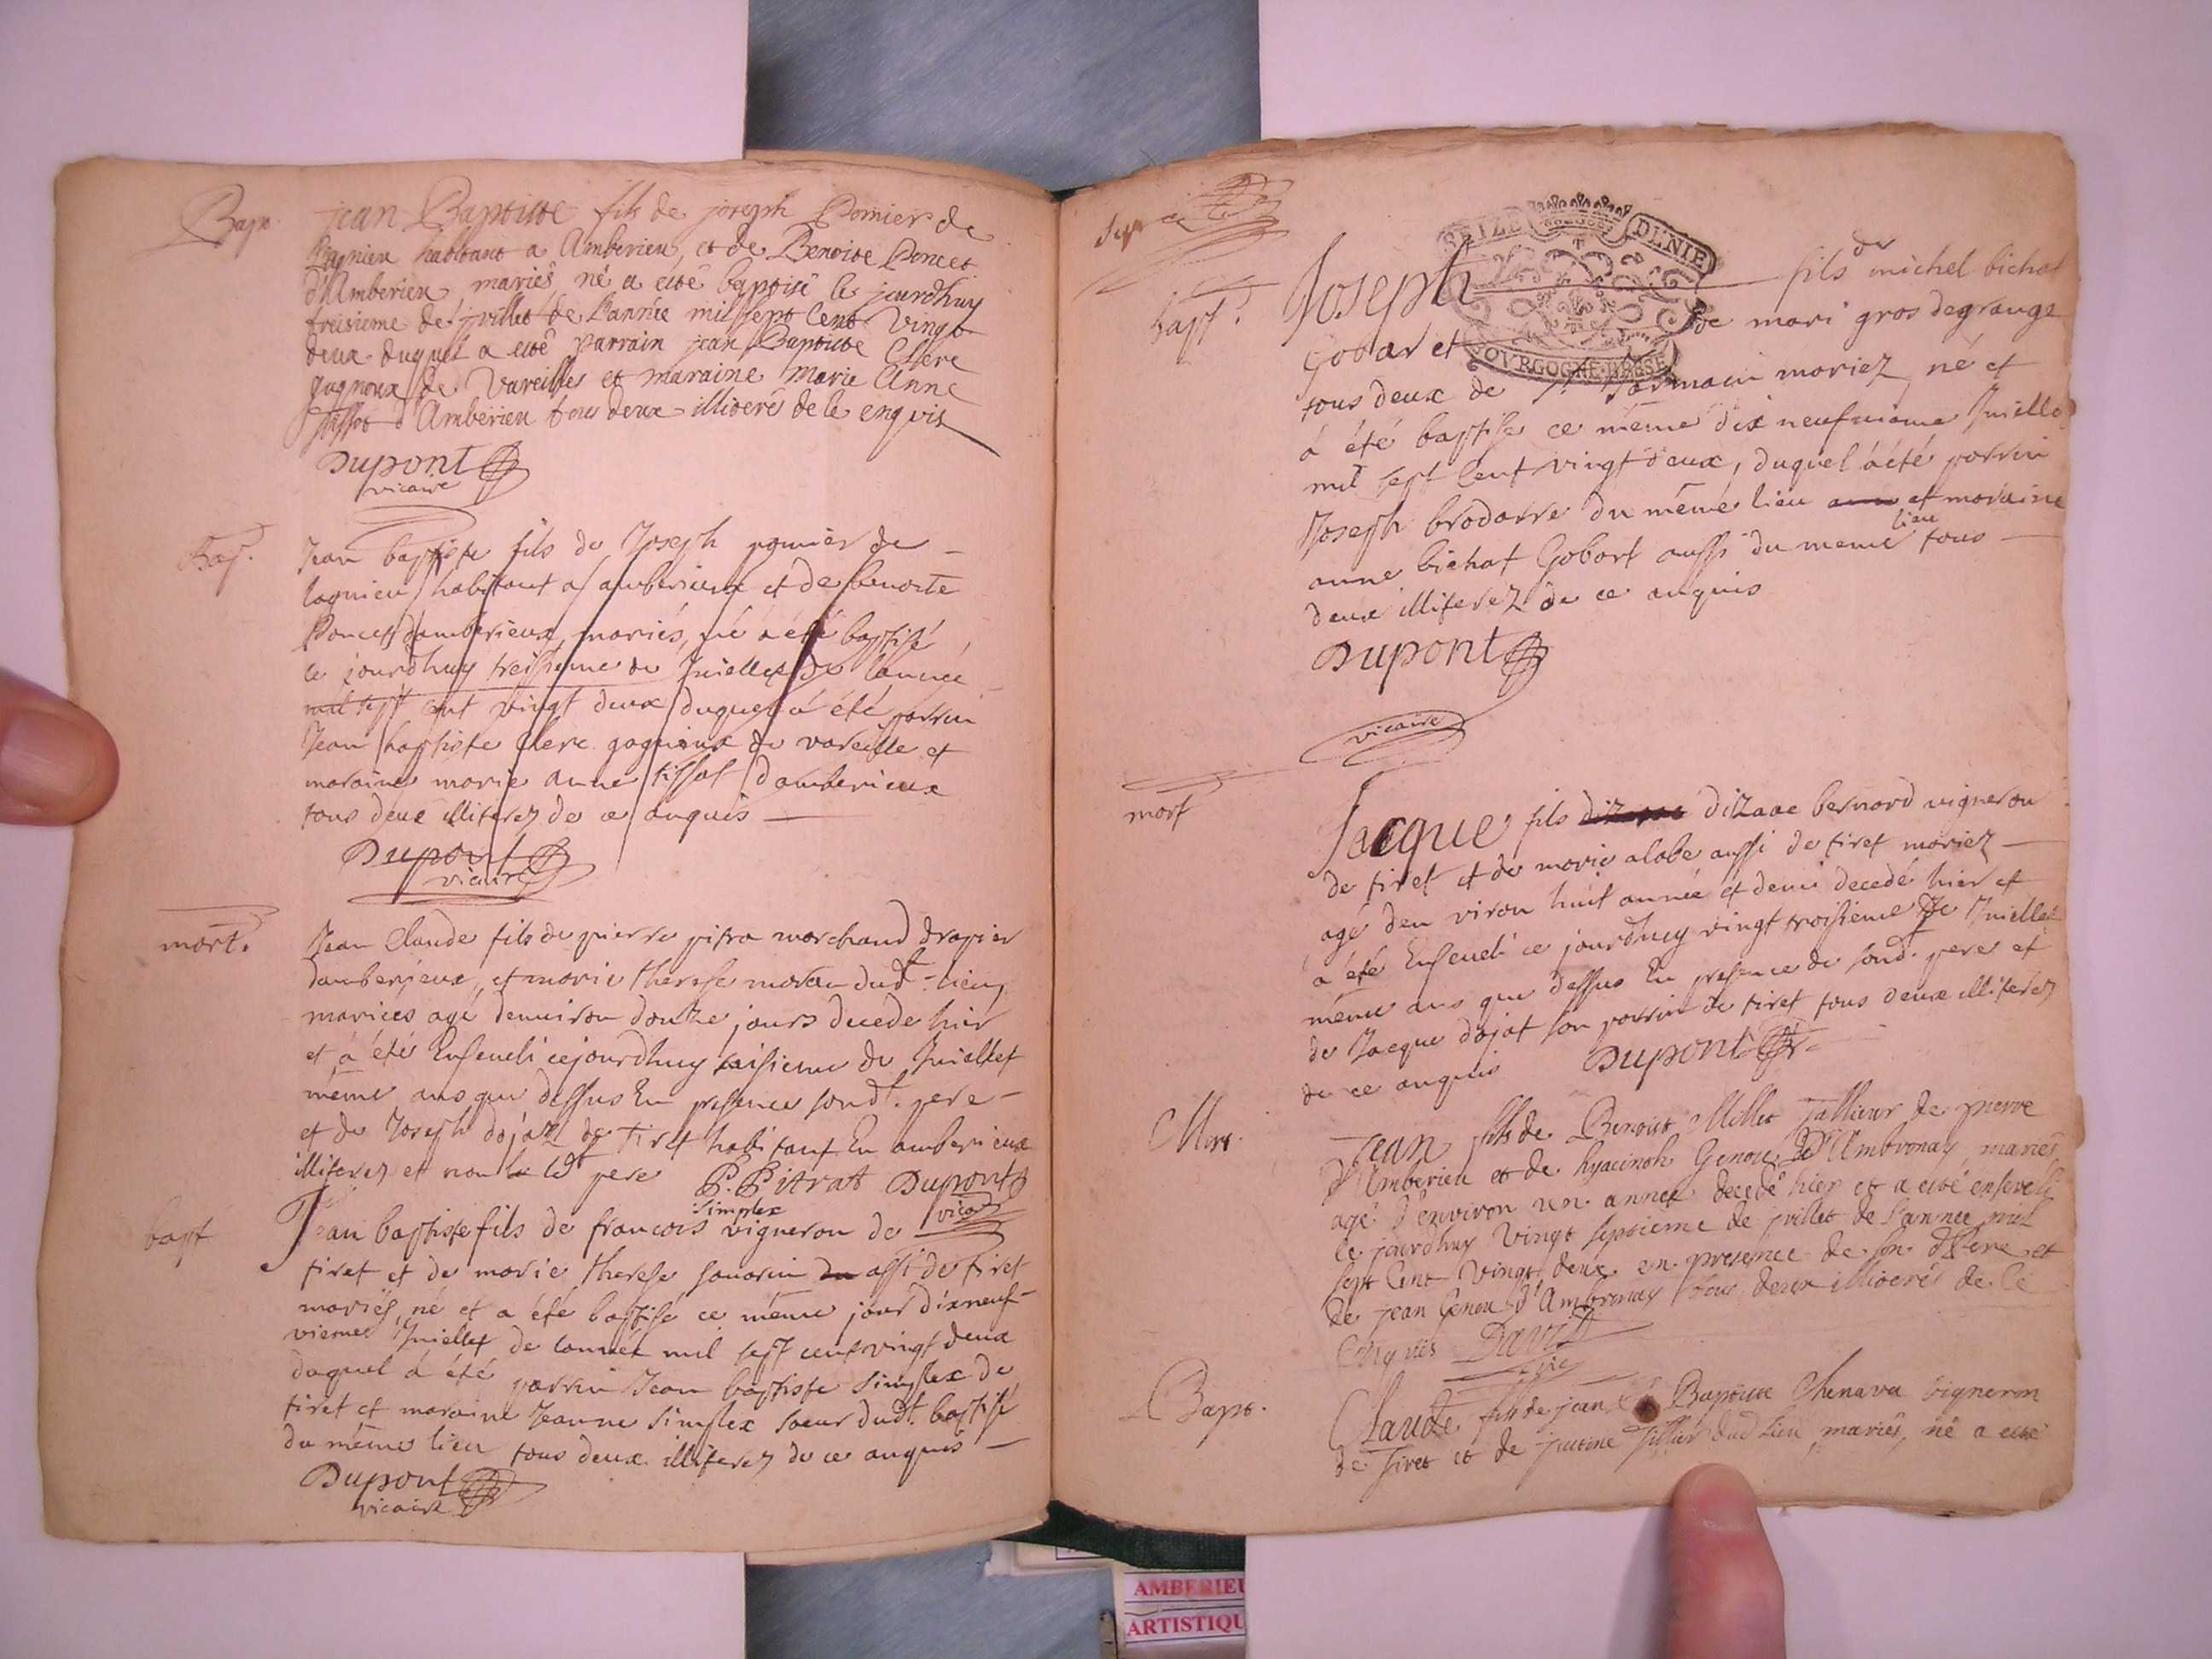 Bapt.
jean Baptiste fils de joseph Pomier de
Lagnieu habitant a Amberieu, et de Benoite Poncet
d'Amberieu, mariés né a esté baptisé le jourdhuy
treisieme de juillet de l'année mil sept cent vingt
deux duquel a esté parrain jean Baptiste Clerc
gagneux de Vareilles et maraine Marie Anne
Tissot d'Amberieu tous deux illiterés de ce enquis
Dupont
vicaire
Bap.
Jean baptiste fils de Joseph pomier de
lagnieu habitant a amberieux et de benoite
Poncet damberieux, mariés, né a été baptisé
ce jourdhuy treisieme de Juiellet de lannée
mil sept cent vingt deux duquel a été parrin
Jean baptiste Clerc gagnieux de vareille et
maraine marie anne tissot damberieux
tous deux illiterez de ce anquis
Dupont
vicaire
mort.
Jean Claude fils de pierre pitra marchand drapier
damberieux, et marie therese moran dudt lieu,
mariees agé denuiron douze jours decede hier
et à été Enseueli cejourdhuy saisieme de Juiellet
même ans que dessus En presence sondt. pere
et de Joseph dojat de tiret habitant En amberieux
illiterez et non le ledt pere P. Pitrat Dupont
simplex
vicaire
bapt
Jean baptiste fils de francois vigneron de
tiret et de marie therese sauarin du assi de tiret
mariës, né et a été baptisé ce même jour dixneuf-
vieme Juiellet de lannéé mil sept cent vingt deux
duquel à été parrin Jean baptiste simplex de
tiret et maraine Jeanne simplex soeur dudt. baptisé
du même lieu tous deux illiterez de ce anquis
Dupont
vicaire
bapt.
SEIZE DENIE
BOVRGOGNE BRESSE
Joseph fils de michel bichat
Gobar et de mari gros degrange
tous deux de St Germain mariez né et
à été baptise ce même dix neufuieme Juiellet
mil sept Cent vingt deux, duquel à été parrin
Joseph brodarre du même lieu et maraine
anne bichat Gobart aussi du meme lieu tous
deux illiterez de ce anquis
Dupont
vicaire
mort
Jacque fils dizaac bernard vigneron
de tiret et de marie alabe aussi de tiret mariez
agé den viron huit année et demi decedé hier et
a été Enseueli ce jourdhuy vingt troisieme de Juiellet
même ans que dessus En presence de sond. pere et
de Jacque dojat son parrin de tiret tous deux illiterez
de ce anquis Dupont
Mort.
Jean fils de Benoist Millet Tallieur de pierre
d'Amberieu et de hyacinth Genou d'Ambronay mariés,
agé d'environ un année decedé hier et a esté enseveli
le jourdhuy vingt septieme de juillet de l'année mil
sept Cent vingt deux en presence de son d Pere et
de jean Genou d'Ambronay tous deux illiterés de ce
Enquis David
vic
Bapt.
Claude fils de jean Baptiste Chenava vigneron
de Tiret et de Tissier dud lieu mariés, né a esté
AMBERIEU
ARTISTIQU